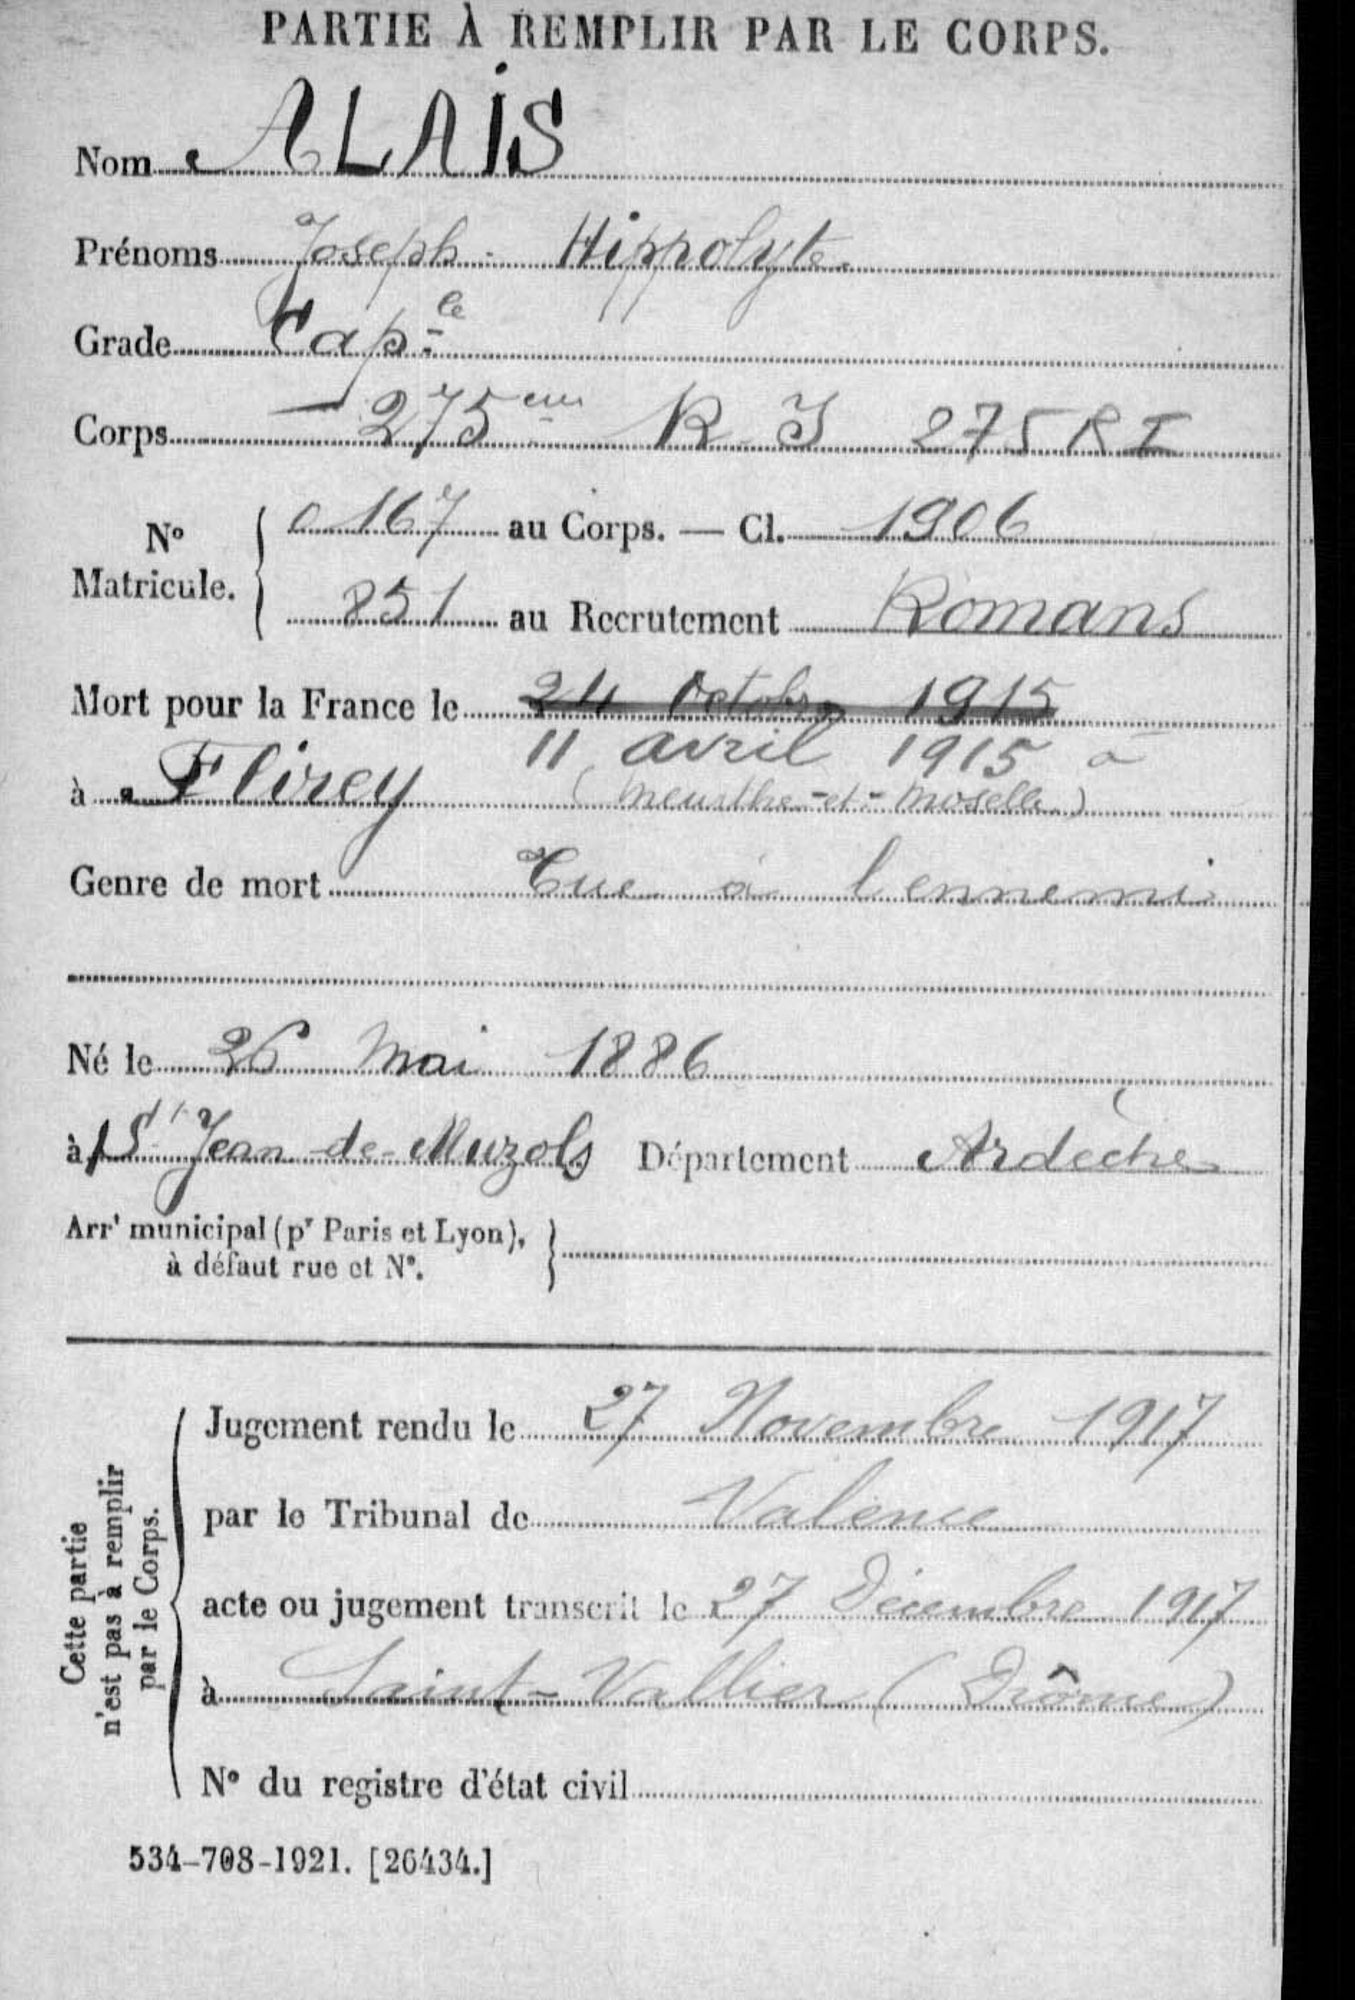 PARTIE À REMPLIR PAR LE CORPS.
Nom ALAIS
Prénoms Joseph - Hippolyte
Grade Cap-le
Corps 275em R I 275 RI
N° Matricule. 0167 au Corps. — Cl. 1906
851 au Recrutement Romans
Mort pour la France le 24 Octobre 1915
11 avril 1915 à
à Flirey (Meurthe-et-Moselle)
Genre de mort Tué à l'ennemi
Né le 26 Mai 1886
à St Jean-de-Muzols Département Ardèche
Arrt municipal (pr Paris et Lyon),
à défaut rue et N°.
Cette partie n'est pas à remplir par le Corps.
Jugement rendu le 27 Novembre 1917
par le Tribunal de Valence
acte ou jugement transcrit le 27 Décembre 1917
à Saint-Vallier (Drôme)
N° du registre d'état civil
534-708-1921. [26434.]